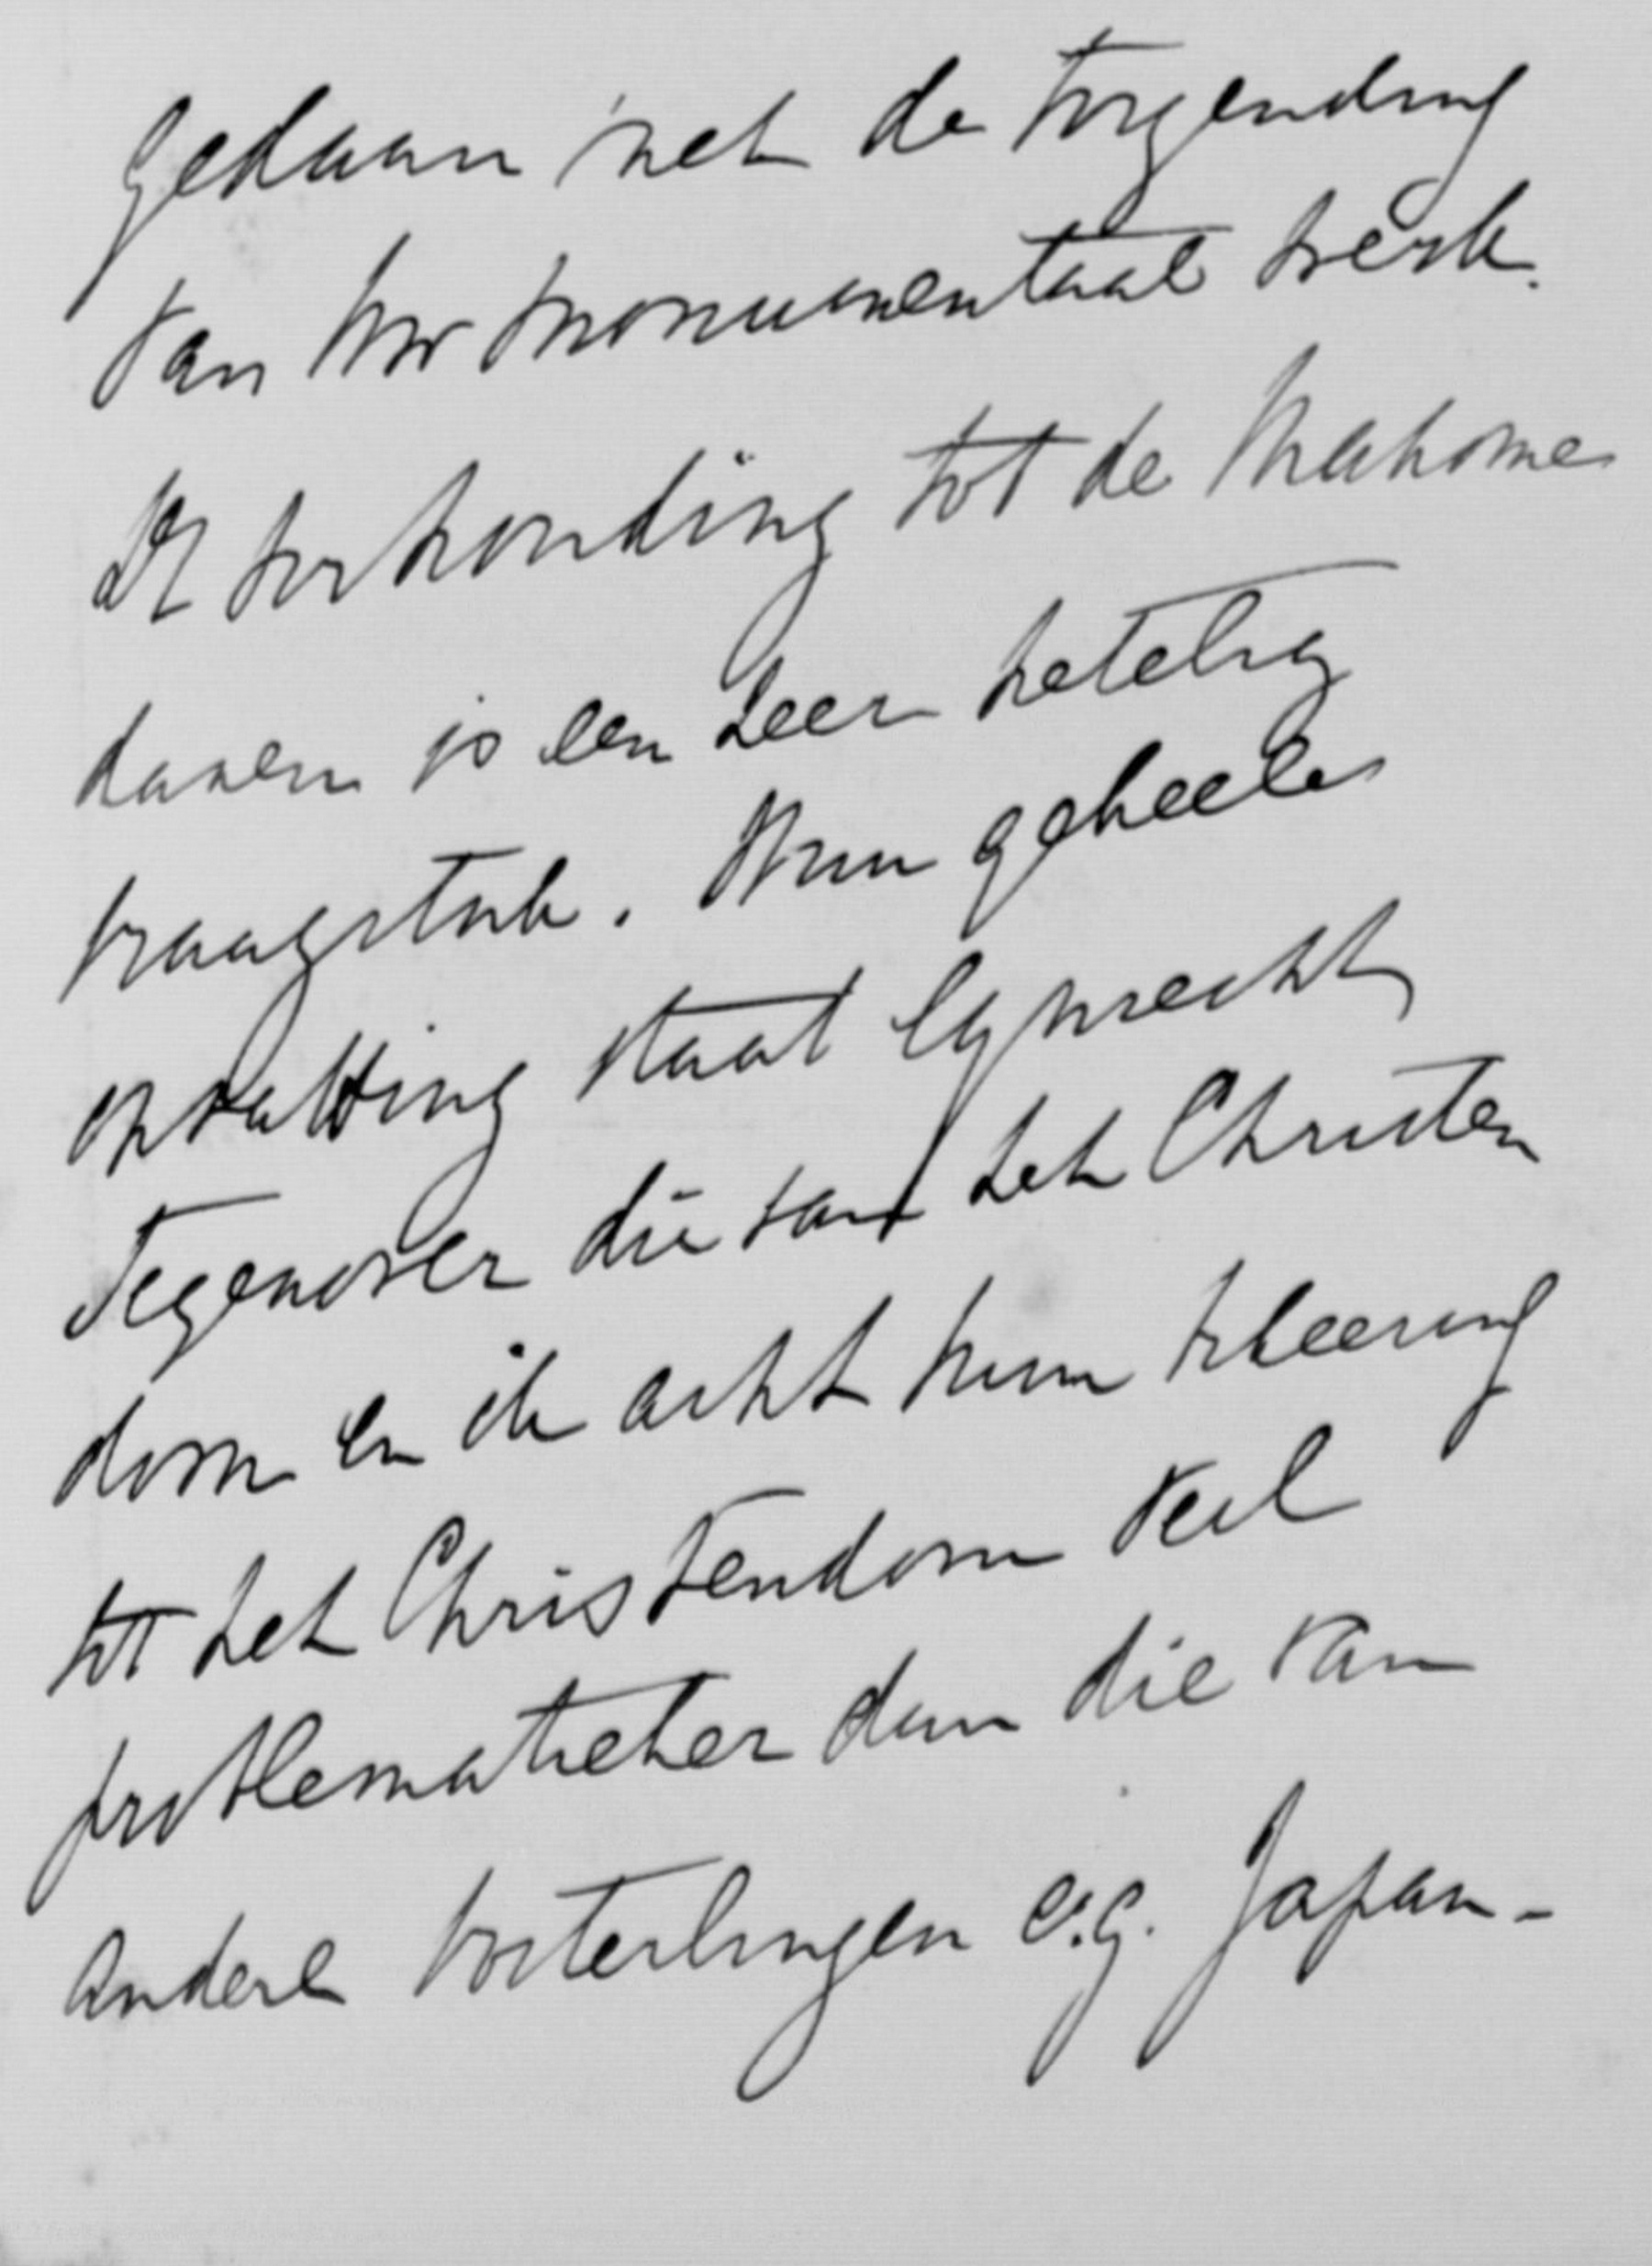 gedaan met de toezending
van Uw monumentaal werk.
De verhouding tot de Mahome
danen is een zeer netelig
vraagstuk. Hun geheele
opvatting staat lynrecht
tegenover die van het Christen
dom en ik acht hun bekeering
tot het Christendom veel
problematieker dan die van
andere Oosterlingen e.g. Japan-